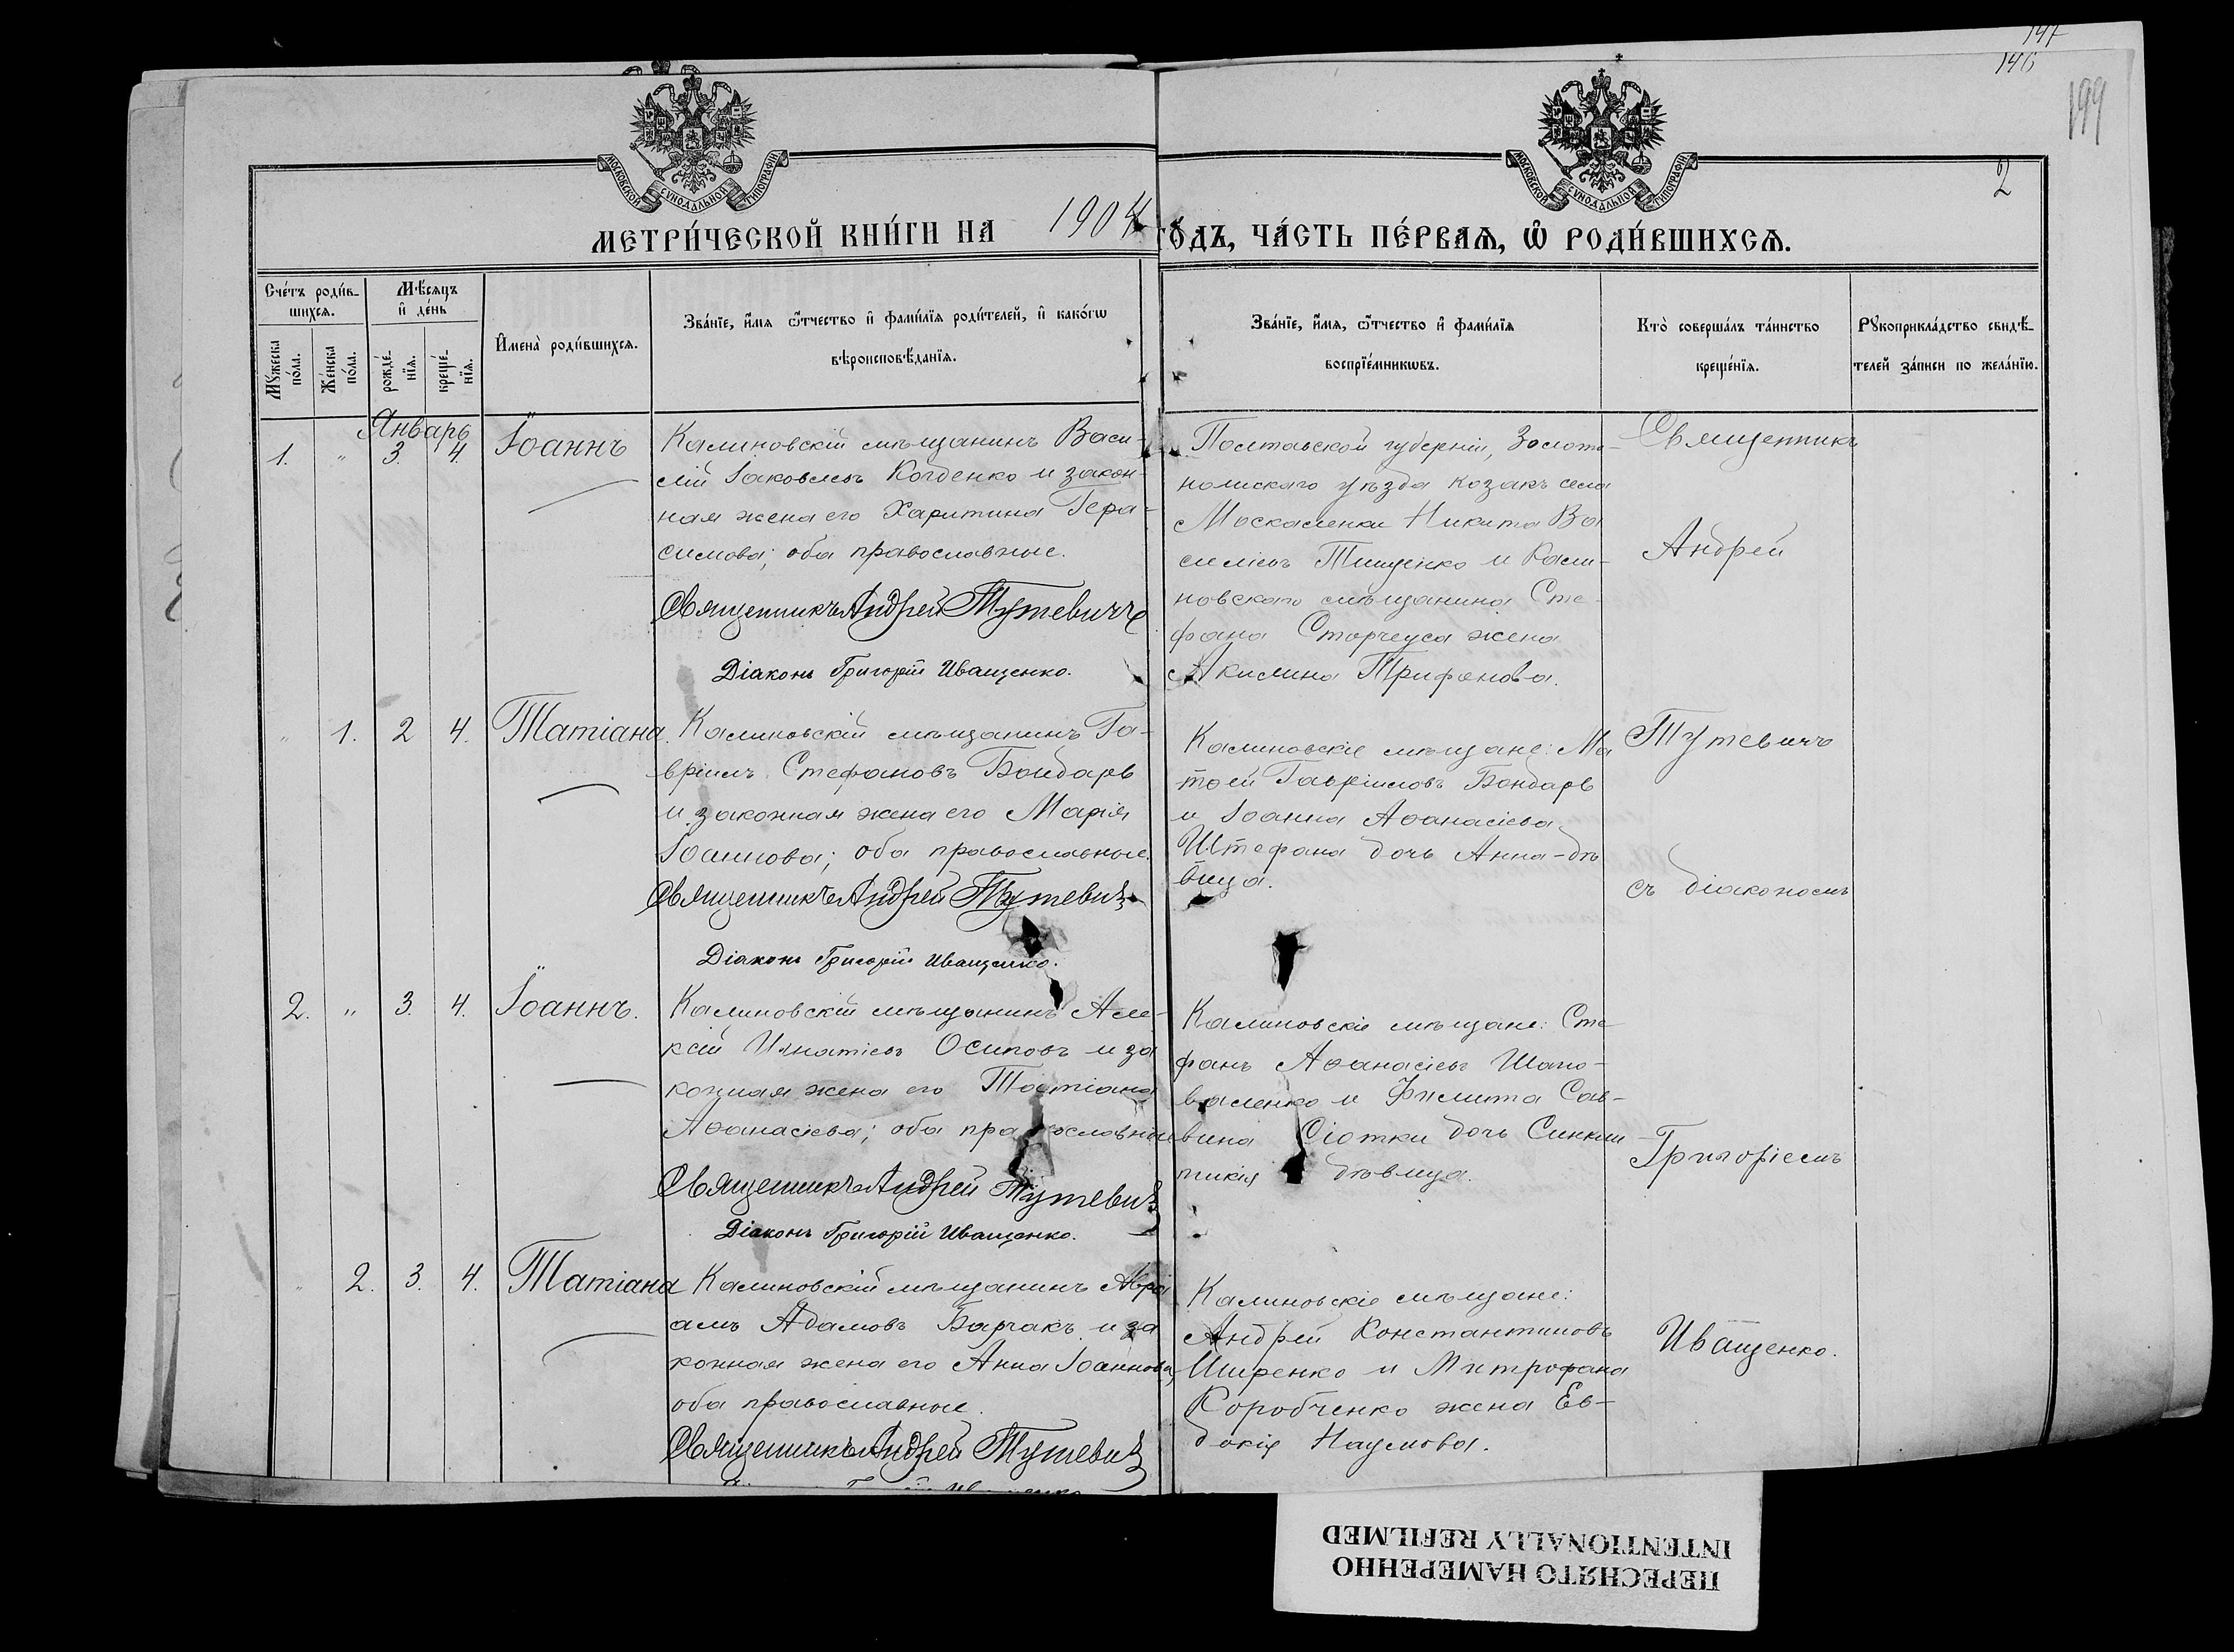 147
146
199
2
МОСКОВСКОЙ СѴНОДАЛЬНОЙ ТИПОГРАФІИ
МОСКОВСКОЙ СѴНОДАЛЬНОЙ ТИПОГРАФІИ
МЕТРИ́ЧЕСКОЙ КНИ́ГИ НА 1904 ГО́ДЪ, ЧА́СТЬ ПЕ́РВАѦ, Ѿ РОДИ́ВШИХСѦ.
Сче́тъ роди́в-
шихсѧ.
Мꙋ́жеска по́ла.
Же́нска по́ла.
Мѣ́сѧцъ
и҆ де́нь
рожде́-
нїѧ.
креще́-
нїѧ.
И҆мена̀ роди́вшихсѧ.
Зва́нїе, и҆́мѧ ѻ҆́тчество и҆ фами́лїѧ роди́телей, и҆ како́гѡ
вѣроисповѣ́данїѧ.
Зва́нїе, и҆́мѧ, ѻ҆́тчество и҆ фами́лїѧ
воспрїе́мникѡвъ.
Кто̀ соверша́лъ та́инство
креще́нїѧ.
Рꙋкоприкла́дство свидѣ́-
телей за́писи по жела́нїю.
Январь
1. " 3. 4. Іоаннъ
Калиновскій мѣщанинъ Васи-
лій Іаковлевъ Когденко и закон-
ная жена его Харитина Гера-
симова; оба православные.
Священникъ Андрей Тутевичъ
Діаконъ Григорій Иващенко.
Полтавской губерніи, Золото-
ношскаго уѣзда козакъ села
Москаленки Никита Ва
силіевъ Тищенко и Кали-
новскаго мѣщанина Сте-
фана Сторчеуса жена
Акилина Трифонова.
Священникъ
Андрей
" 1. 2 4. Татіана.
Калиновскій мѣщанинъ Га-
вріилъ Стефановъ Бондарь
и законная жена его Марія
Іоаннова; оба православные.
Священникъ Андрей Тутевичъ
Діаконъ Григорій Иващенко.
Калиновскіе мѣщане: Ма
тѳей Гавріиловъ Бондарь
и Іоанна Аѳанасіева
Штефана дочь Анна-дѣ
вица.
Тутевичъ
съ діакономъ
2. " 3. 4. Іоаннъ.
Калиновскій мѣщанинъ Але-
ксій Игнатіевъ Осиповъ и за
конная жена его Татіана
Аѳанасіева; оба православные
Священникъ Андрей Тутевичъ
Діаконъ Григорій Иващенко.
Калиновскіе мѣщане: Сте
фанъ Аѳанасіевъ Шапо-
валенко и Филиппа Сав-
вина Сіотки дочь Синкли-
тикія дѣвица.
Григоріемъ
" 2. 3. 4. Татіана
Калиновскій мѣщанинъ Авра
амъ Адамовъ Барчакъ и за
конная жена его Анна Іоаннова,
оба православные.
Священникъ Андрей Тутевичъ
Калиновскіе мѣщане:
Андрей Константиновъ
Ширенко и Митрофана
Коробченко жена Ев-
докія Наумова.
Иващенко.
ПЕРЕСНЯТО НАМЕРЕННО
INTENTIONALLY REFILMED